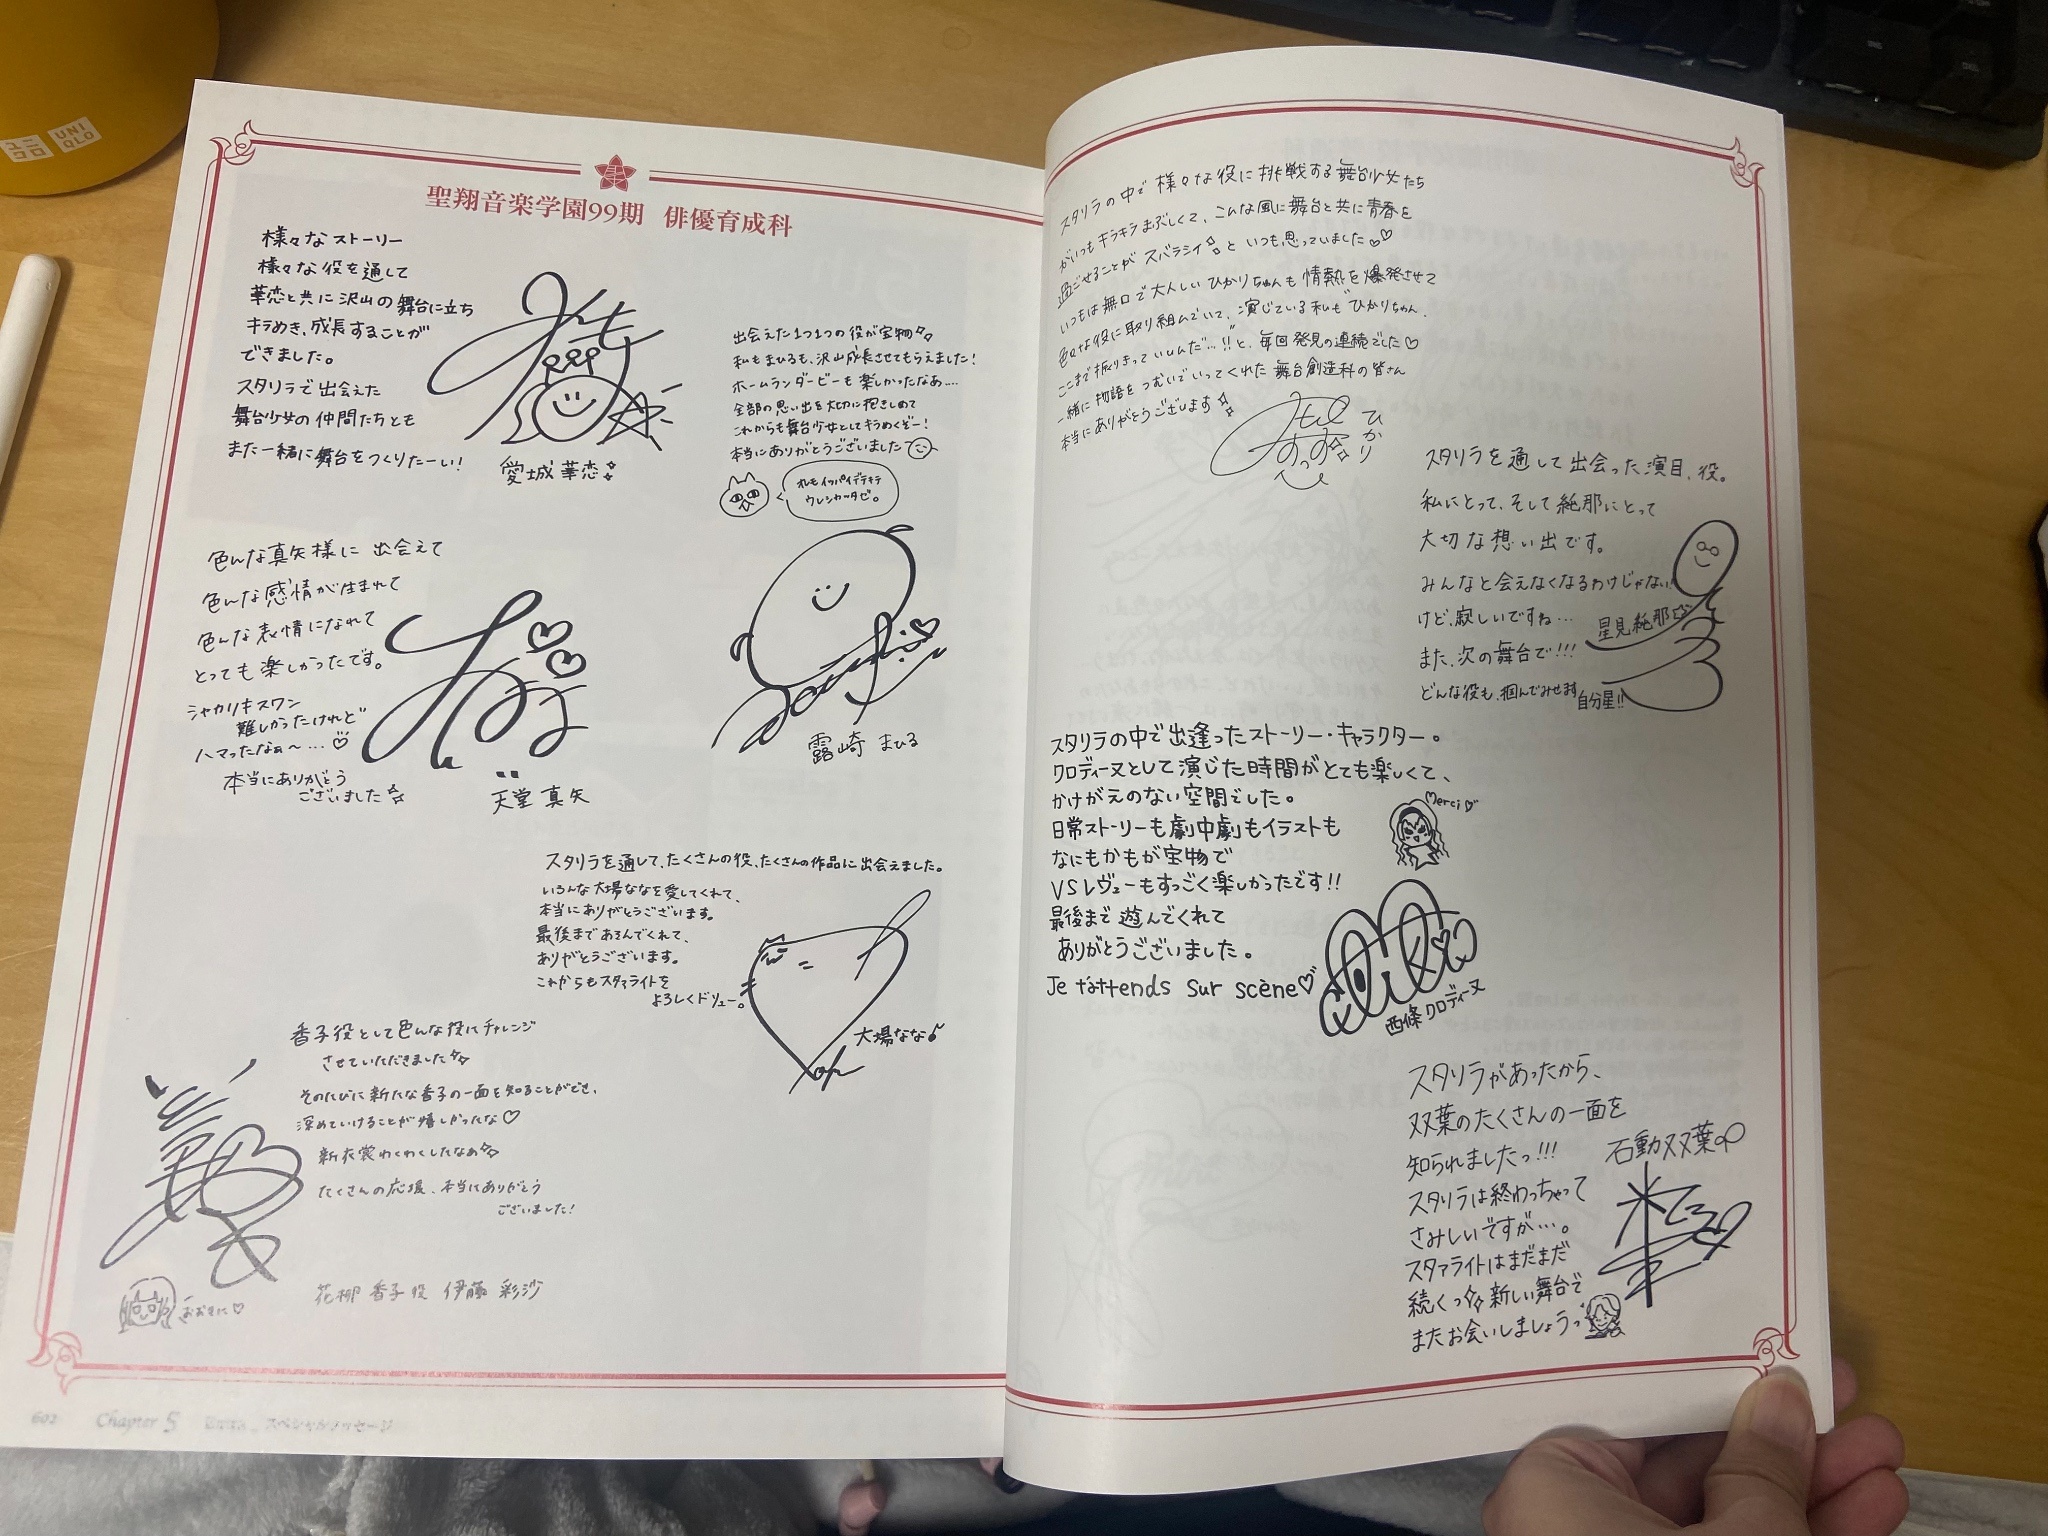 UNI
QLO
聖翔音楽学園99期 俳優育成科
様々なストーリー
様々な役を通して
華恋と共に沢山の舞台に立ち
キラめき、成長することが
できました。
スタリラで出会えた
舞台少女の仲間たちとも
また一緒に舞台をつくりたーい!
愛城華恋
出会えた1つ1つの役が宝物
私もまひるも、沢山成長させてもらえました!
ホームランダービーも楽しかったなぁ…
全部の思い出を大切に抱きしめて
これからも舞台少女としてキラめくぞー!
本当にありがとうございました
オレモイッパイデテキテ
ウレシカッタゼ。
露崎 まひる
色んな真矢様に出会えて
色んな感情が生まれて
色んな表情になれて
とっても楽しかったです。
シャカリキスワン
難しかったけれど
ハマったなぁ〜…♡
本当にありがとう
ございました
天堂 真矢
スタリラを通して、たくさんの役、たくさんの作品に出会えました。
いろんな大場ななを愛してくれて、
本当にありがとうございます。
最後まであそんでくれて、
ありがとうございます。
これからもスタァライトを
よろしくドリュー。
大場なな♪
香子役として色んな役にチャレンジ
させていただきました
そのたびに新たな香子の一面を知ることができ、
深めていけることが嬉しかったな♡
新衣裳わくわくしたなぁ
たくさんの応援、本当にありがとう
ございました!
おおきに♡
花柳 香子役 伊藤 彩沙
602 Chapter 5 スペシャルメッセージ
スタリラの中で様々な役に挑戦する舞台少女たち
がいつもキラキラまぶしくて、こんな風に舞台と共に青春を
過ごせることがスバラシイ と いつも思っていました♡♡
いつもは無口で大人しいひかりちゃんも情熱を爆発させて
色々な役に取り組んでいて、演じている私も“ひかりちゃん、
ここまで振りきっていいんだ…!!”と、毎回発見の連続でした♡
一緒に物語をつむいでいってくれた舞台創造科の皆さん
本当にありがとうございます
ひかり
スタリラを通して出会った演目、役。
私にとって、そして純那にとって
大切な想い出です。
みんなと会えなくなるわけじゃない!
けど、寂しいですね…
また、次の舞台で!!!
どんな役も、掴んでみせます 自分星!!
星見純那
スタリラの中で出逢ったストーリー・キャラクター。
クロディーヌとして演じた時間がとても楽しくて、
かけがえのない空間でした。
日常ストーリーも劇中劇もイラストも
なにもかもが宝物で
VSレヴューもすっごく楽しかったです!!
最後まで遊んでくれて
ありがとうございました。
Je t'attends sur scène♡
Merci♡
西條クロディーヌ
スタリラがあったから、
双葉のたくさんの一面を
知られましたっ!!!
スタリラは終わっちゃって
さみしいですが…。
スタァライトはまだまだ
続くっ 新しい舞台で
またお会いしましょうっ
石動双葉